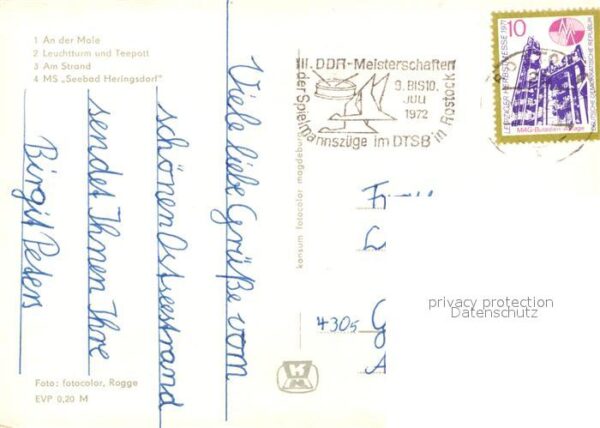 1 An der Mole
2 Leuchtturm und Teepott
3 Am Strand
4 MS „Seebad Heringsdorf"
Viele liebe Grüße vom
schönen Ostseestrand
sendet Ihnen Ihre
Birgit Peters
Foto: fotocolor, Rogge
EVP 0,20 M
konsum fotocolor magdeburg
III. DDR-Meisterschaften
9. BIS 10.
JULI
1972
der Spielmannszüge im DTSB in Rostock
10
LEIPZIGER HERBSTMESSE 1971
DEUTSCHE DEMOKRATISCHE REPUBLIK
4305
privacy protection
Datenschutz